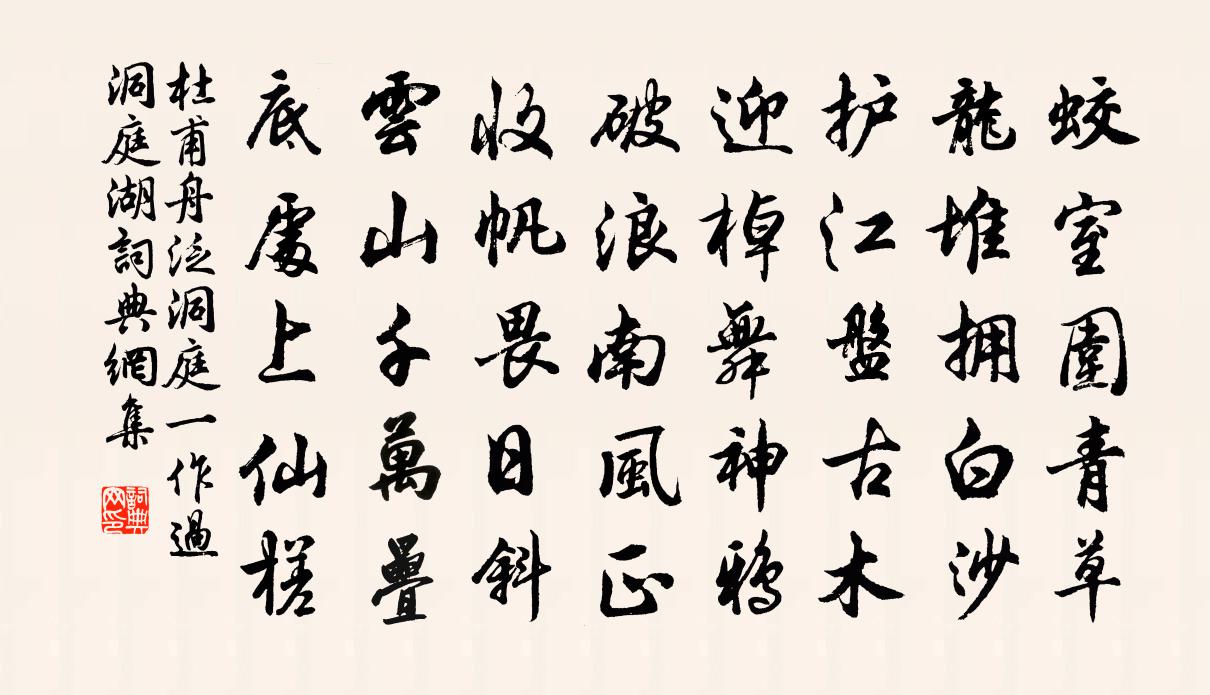 蛟室圍青草
龍堆拥白沙
护江盤古木
迎棹舞神鴉
破浪南風正
收帆畏日斜
雲山千萬疊
底處上仙槎
杜甫舟泛洞庭一作過
洞庭湖詞典網集
詞典网印